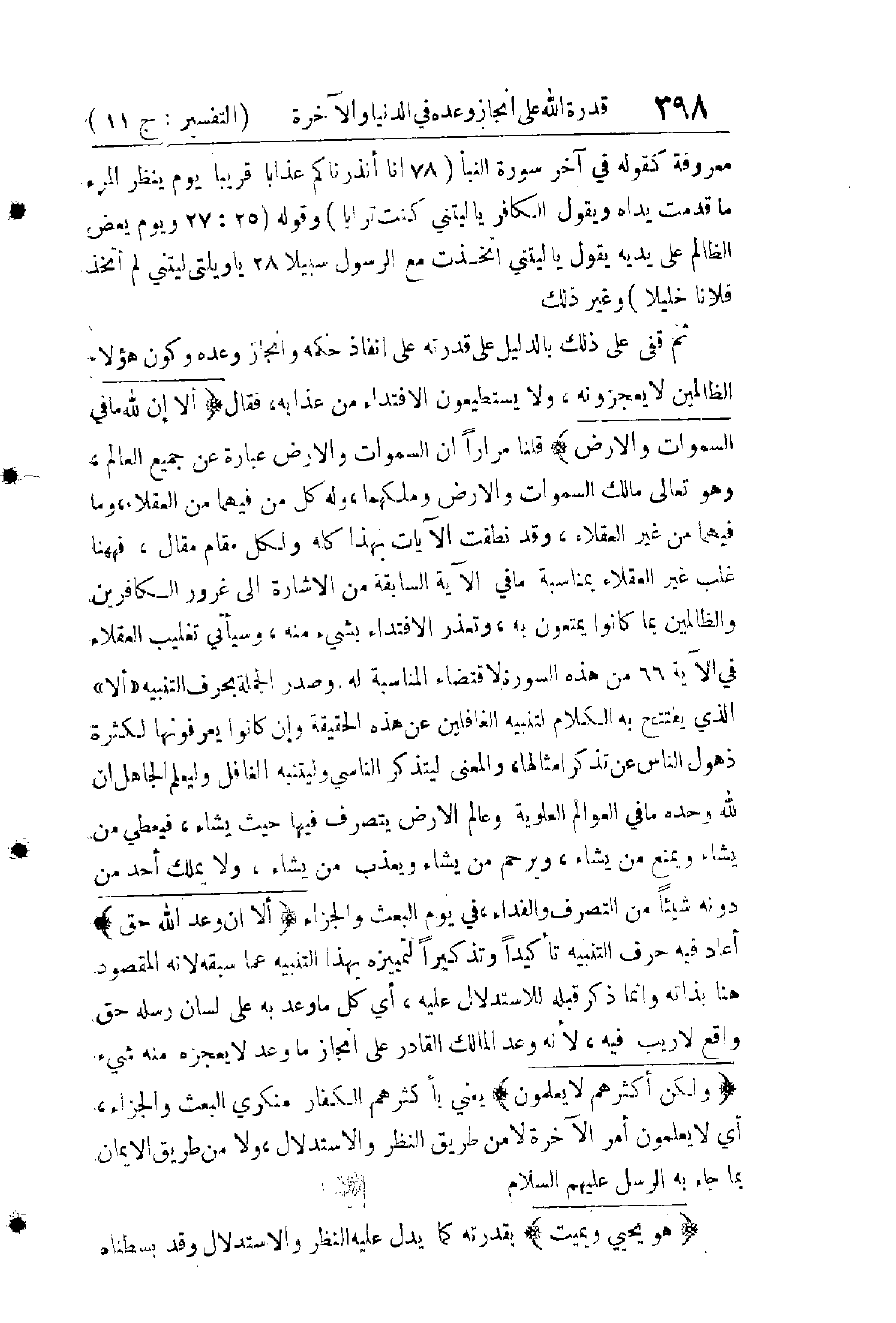 ٣٩٨ قدرة الله على أنجاز وعده في الدنيا والآخرة (التفسير : ج ١١)
معروفة كقوله في آخر سورة النبأ ( ٧٨ انا أنذرناكم عذابا قريبا يوم ينظر المرء
ما قدمت يداه ويقول الكافر ياليتني كنت ترابا ) وقوله (٢٥ : ٢٧ ويوم يعض
الظالم على يديه يقول ياليتني اتخذت مع الرسول سبيلا ٢٨ ياويلتى ليتني لم أتخذ
فلانا خليلا ) وغير ذلك
ثم قفى على ذلك بالدليل على قدرته على انفاذ حكمه وانجاز وعده وكون هؤلاء
الظالمين لايعجزونه ، ولا يستطيعون الافتداء من عذابه، فقال ﴿ ألا إن لله مافي
السموات والارض ﴾ قلنا مراراً ان السموات والارض عبارة عن جميع العالم ،
وهو تعالى مالك السموات والارض وملكهما ، وله كل من فيهما من العقلاء ، وما
فيهما من غير العقلاء ، وقد نطقت الآيات بهذا كله ولكل مقام مقال ، فههنا
غلب غير العقلاء بمناسبة مافي الآية السابقة من الاشارة الى غرور الكافرين
والظالمين بما كانوا يمتعون به ، وتعذر الافتداء بشيء منه ، وسيأتي تغليب العقلاء
في الآية ٦٦ من هذه السورة لاقتضاء المناسبة له. وصدر الجملة بحرف التنبيه «ألا»
الذي يفتتح به الكلام لتنبيه الغافلين عن هذه الحقيقة وإن كانوا يعرفونها لكثرة
ذهول الناس عن تذكر امثالها، والمعنى ليتذكر الناسي وليتنبه الغافل وليعلم الجاهل ان
لله وحده مافي العوالم العلوية وعالم الارض يتصرف فيها حيث يشاء ، فيعطي من
يشاء ويمنع من يشاء ، ويرحم من يشاء ويعذب من يشاء ، ولا يملك أحد من
دونه شيئاً من التصرف والفداء ، في يوم البعث والجزاء ﴿ ألا ان وعد الله حق ﴾
أعاد فيه حرف التنبيه تأكيداً وتذكيراً لتمييزه بهذا التنبيه عما سبقه لانه المقصود
هنا بذاته وانما ذكر قبله للاستدلال عليه ، أي كل ماوعد به على لسان رسله حق
واقع لاريب فيه ، لأنه وعد المالك القادر على انجاز ما وعد لايعجزه منه شيء
﴿ ولكن أكثرهم لايعلمون ﴾ يعني بأكثرهم الكفار منكري البعث والجزاء ،
أي لايعلمون أمر الآخرة لامن طريق النظر والاستدلال ، ولا من طريق الايمان
بما جاء به الرسل عليهم السلام
﴿ هو يحيي ويميت ﴾ بقدرته كما يدل عليه النظر والاستدلال وقد بسطناه